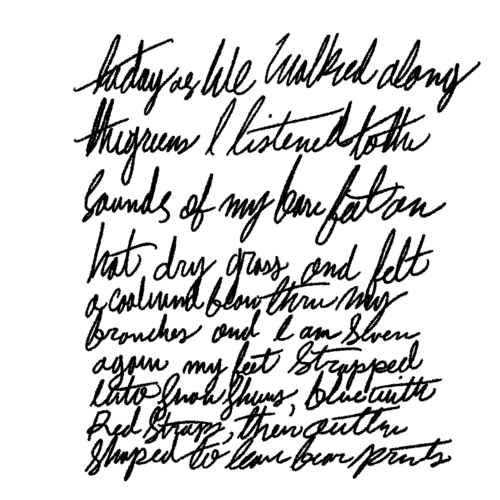 today as We Walked along
the greens I listened to the
Sounds of my bare feet on
hot dry grass and felt
a cool wind blow thru my
branches and I am Seven
again my feet Strapped
Into Snow Shoes, blue with
Red Straps, their outline
Shaped to leave bear prints